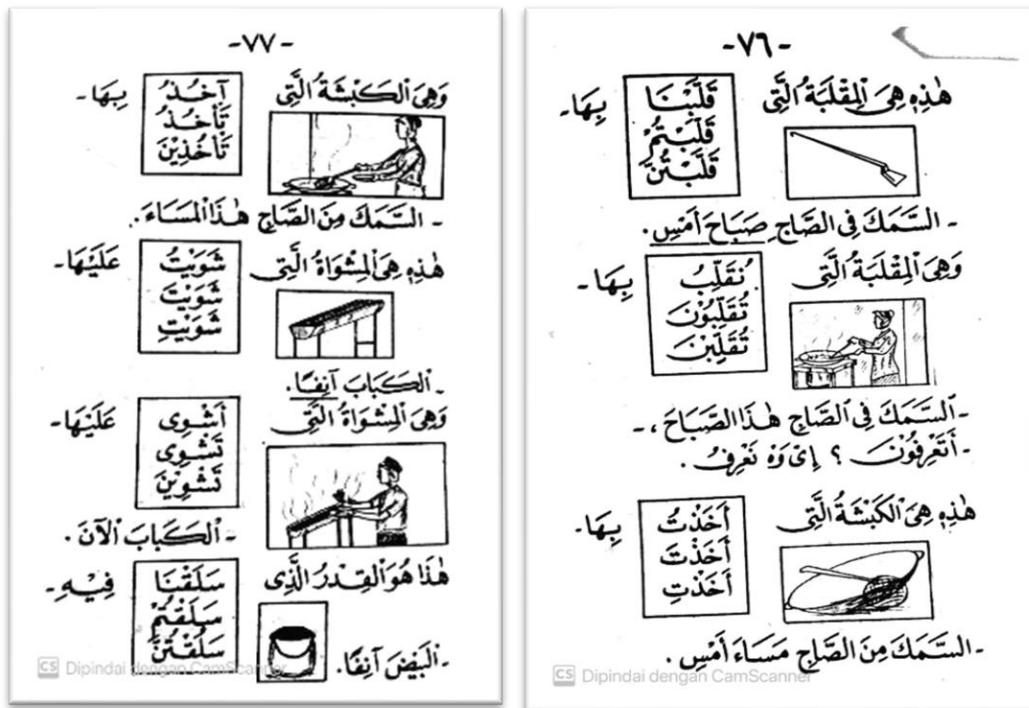 -٧٦-
هٰذِهِ هِيَ ٱلْمِقْلَبَةُ ٱلَّتِى
قَلَّبْنَا
قَلَّبْتُمْ
قَلَّبْتُنَّ
بِهَا-
- السَّمَكَ فِى الصَّاجِ صَبَاحَ أَمْسِ.
وَهِيَ ٱلْمِقْلَبَةُ ٱلَّتِى
نُقَلِّبُ
تُقَلِّبُوْنَ
تُقَلِّبْنَ
بِهَا-
- ٱلسَّمَكَ فِى ٱلصَّاجِ هٰذَا الصَّبَاحَ ،-
- أَتَعْرِفُوْنَ ؟ إِىْ وَهْ نَعْرِفُ.
هٰذِهِ هِيَ ٱلْكَبْشَةُ ٱلَّتِى
أَخَذْتُ
أَخَذْتَ
أَخَذْتِ
بِهَا-
- السَّمَكَ مِنَ الصَّاجِ مَسَاءَ أَمْسِ.
CS Dipindai dengan CamScanner
-٧٧-
وَهِيَ ٱلْكَبْشَةُ ٱلَّتِى
آخُذُ
تَأْخُذُ
تَأْخُذِيْنَ
بِهَا-
- السَّمَكَ مِنَ الصَّاجِ هٰذَا ٱلْمَسَاءَ.
هٰذِهِ هِيَ ٱلْمِشْوَاةُ ٱلَّتِى
شَوَيْتُ
شَوَيْتَ
شَوَيْتِ
عَلَيْهَا-
- ٱلْكَبَابَ آنِفًا.
وَهِيَ ٱلْمِشْوَاةُ ٱلَّتِى
أَشْوِى
تَشْوِى
تَشْوِيْنَ
عَلَيْهَا-
- ٱلْكَبَابَ ٱلْآنَ.
هٰذَا هُوَ ٱلْقِدْرُ ٱلَّذِى
سَلَقْنَا
سَلَقْتُمْ
سَلَقْتُنَّ
فِيْهِ-
- ٱلْبَيْضَ آنِفًا.
CS Dipindai dengan CamScanner